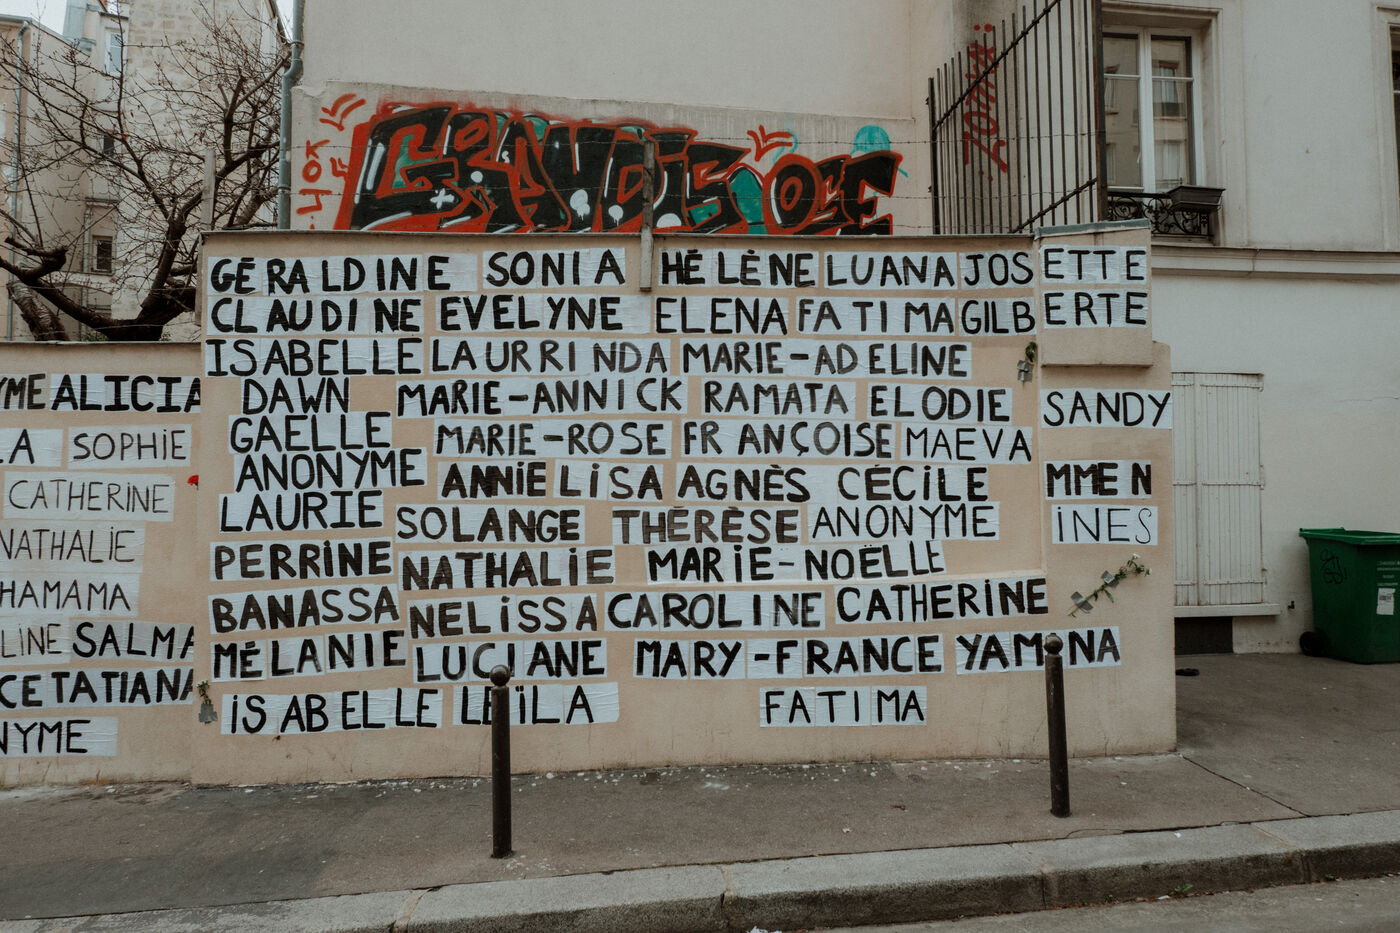 GÉRALDINE SONIA HÉLÈNE LUANA JOSETTE
CLAUDINE EVELYNE ELENA FATIMA GILBERTE
ISABELLE LAURRINDA MARIE-ADELINE
DAWN MARIE-ANNICK RAMATA ELODIE SANDY
GAELLE MARIE-ROSE FRANÇOISE MAEVA
ANONYME ANNIE LISA AGNÈS CÉCILE MMEN
LAURIE SOLANGE THÉRÈSE ANONYME INES
PERRINE NATHALIE MARIE-NOËLLE
BANASSA NELISSA CAROLINE CATHERINE
MÉLANIE LUCIANE MARY-FRANCE YAMINA
ISABELLE LEÏLA FATIMA
YME ALICIA
LA SOPHIE
CATHERINE
NATHALIE
HAMAMA
LINE SALMA
CE TATIANA
NYME